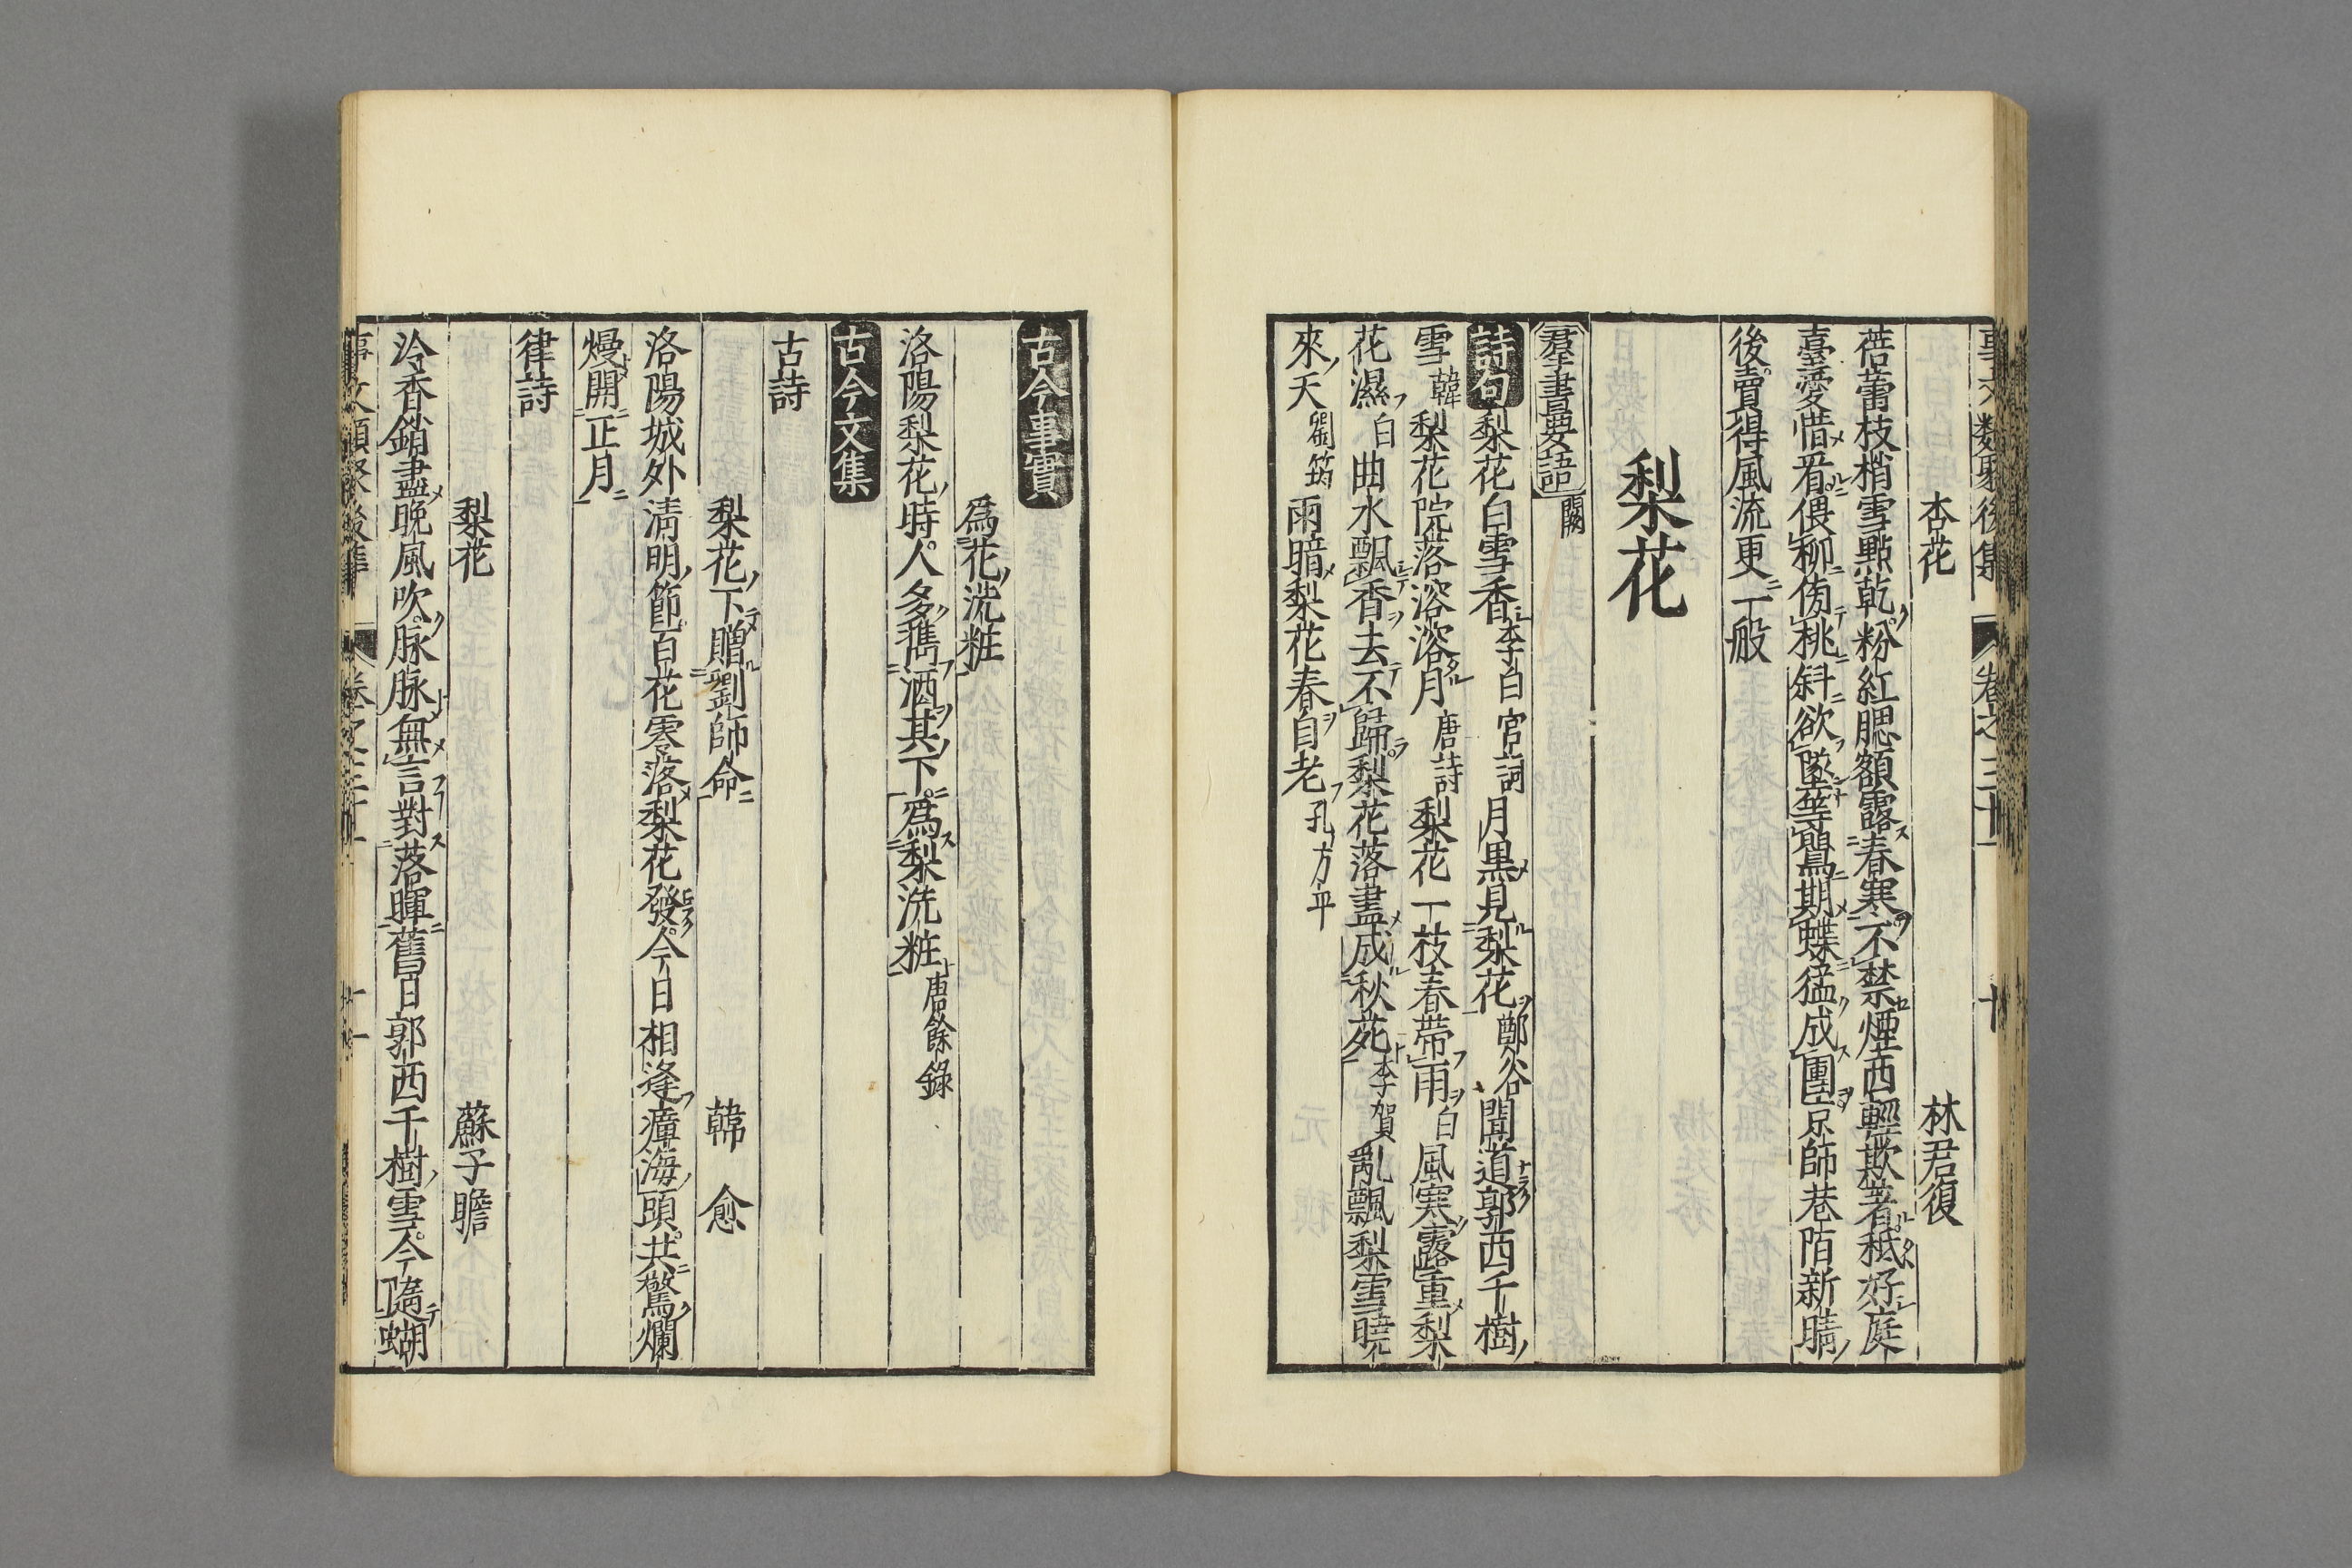 事文類聚後集 卷之三十一 十
杏花 林君復
蓓蕾枝梢雪㸃乾粉紅腮額露春寒不禁煙雨輕欺著秪好庭
臺愛惜看偎柳傍桃斜欲墜等鶯期蝶猛成團京師巷陌新晴
後賣得風流更一般
梨花
羣書要語 闕
詩句 梨花白雪香 李白宮詞 月黒見梨花 鄭谷 聞道郭西千樹
雪 韓 梨花院落溶溶月 唐詩 梨花一枝春帶雨 白 風寒露重梨
花濕 白 曲水飄香去不歸梨花落盡成秋苑 李賀 亂飄梨雪曉
來天 劉筠 雨暗梨花春自老 孔方平
古今事實
爲花洗粧
洛陽梨花時人多携酒其下爲梨洗粧 唐餘錄
古今文集
古詩
梨花下贈劉師命 韓愈
洛陽城外清明節百花寥落梨花發今日相逢瘴海頭共驚爛
熳開正月
律詩
梨花 蘇子瞻
冷香銷盡晚風吹脉脉無言對落暉舊日郭西千樹雪今隨蝴
事文類聚後集 卷之三十一